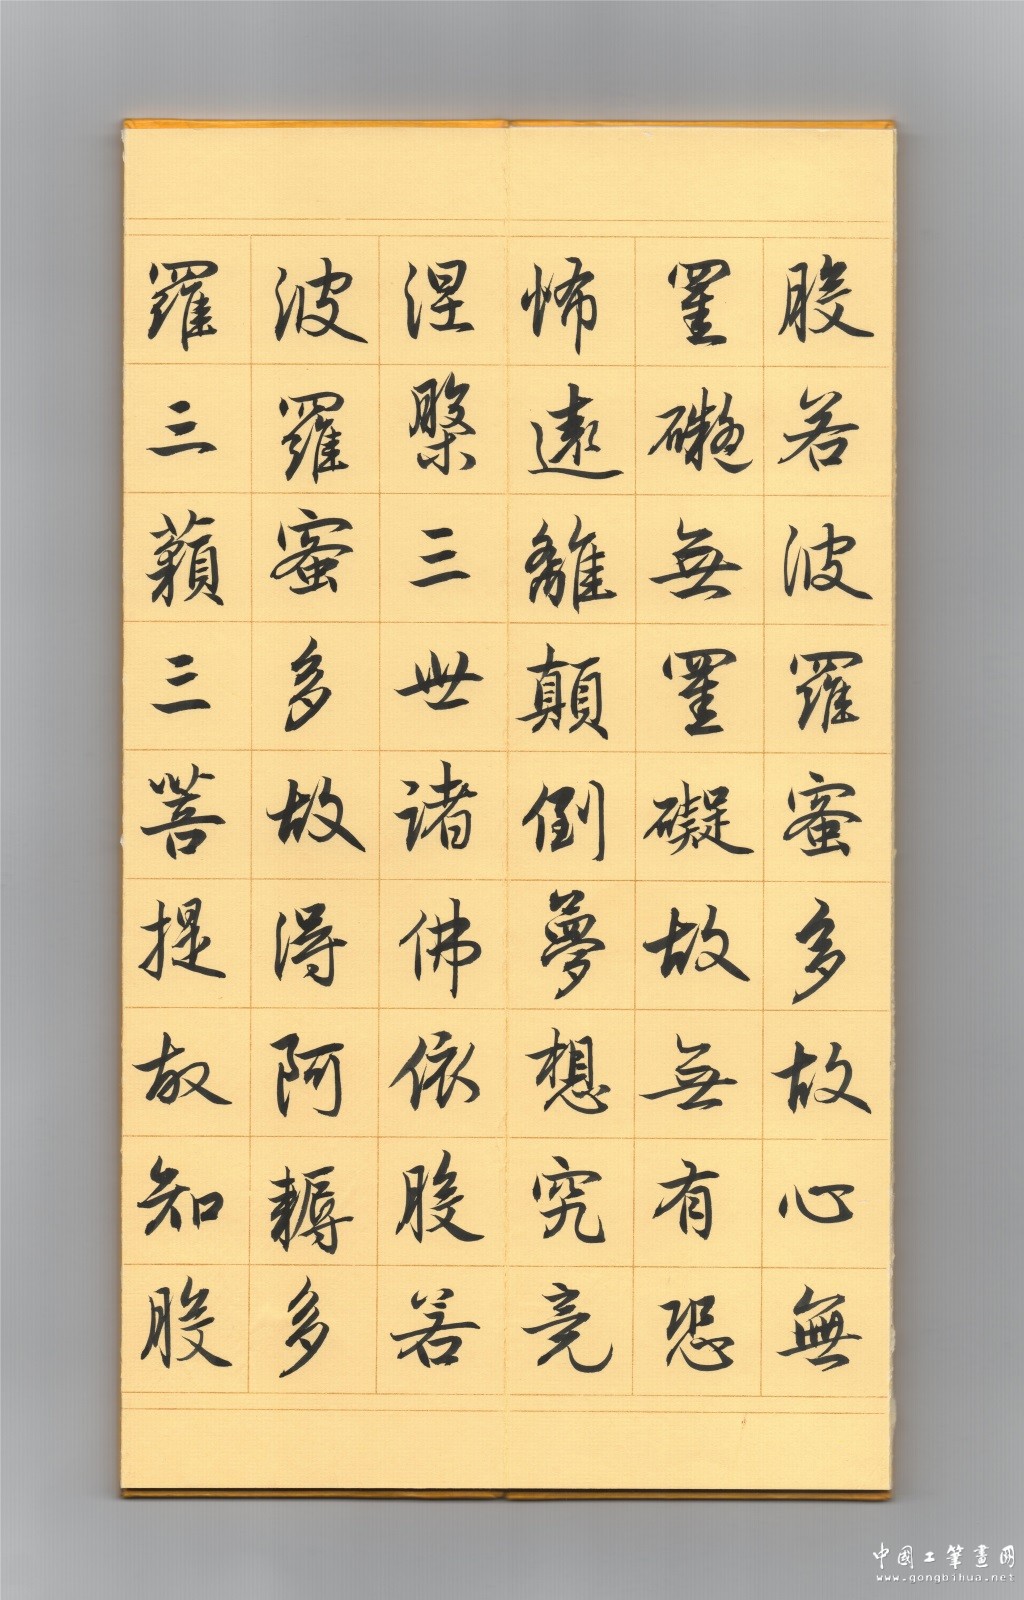 般若波羅蜜多故心無
罣礙無罣礙故無有恐
怖遠離顛倒夢想究竟
涅槃三世諸佛依般若
波羅蜜多故得阿耨多
羅三藐三菩提故知般
中國工筆畫网
www.gongbihua.net